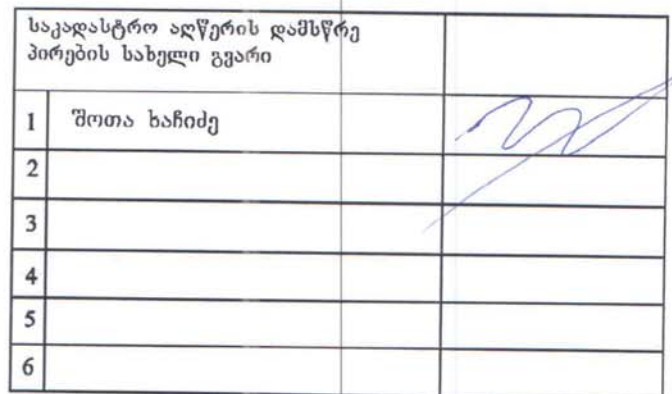 საკადასტრო აღწერის დამსწრე
პირების სახელი გვარი
1 შოთა ხაჩიძე
2
3
4
5
6